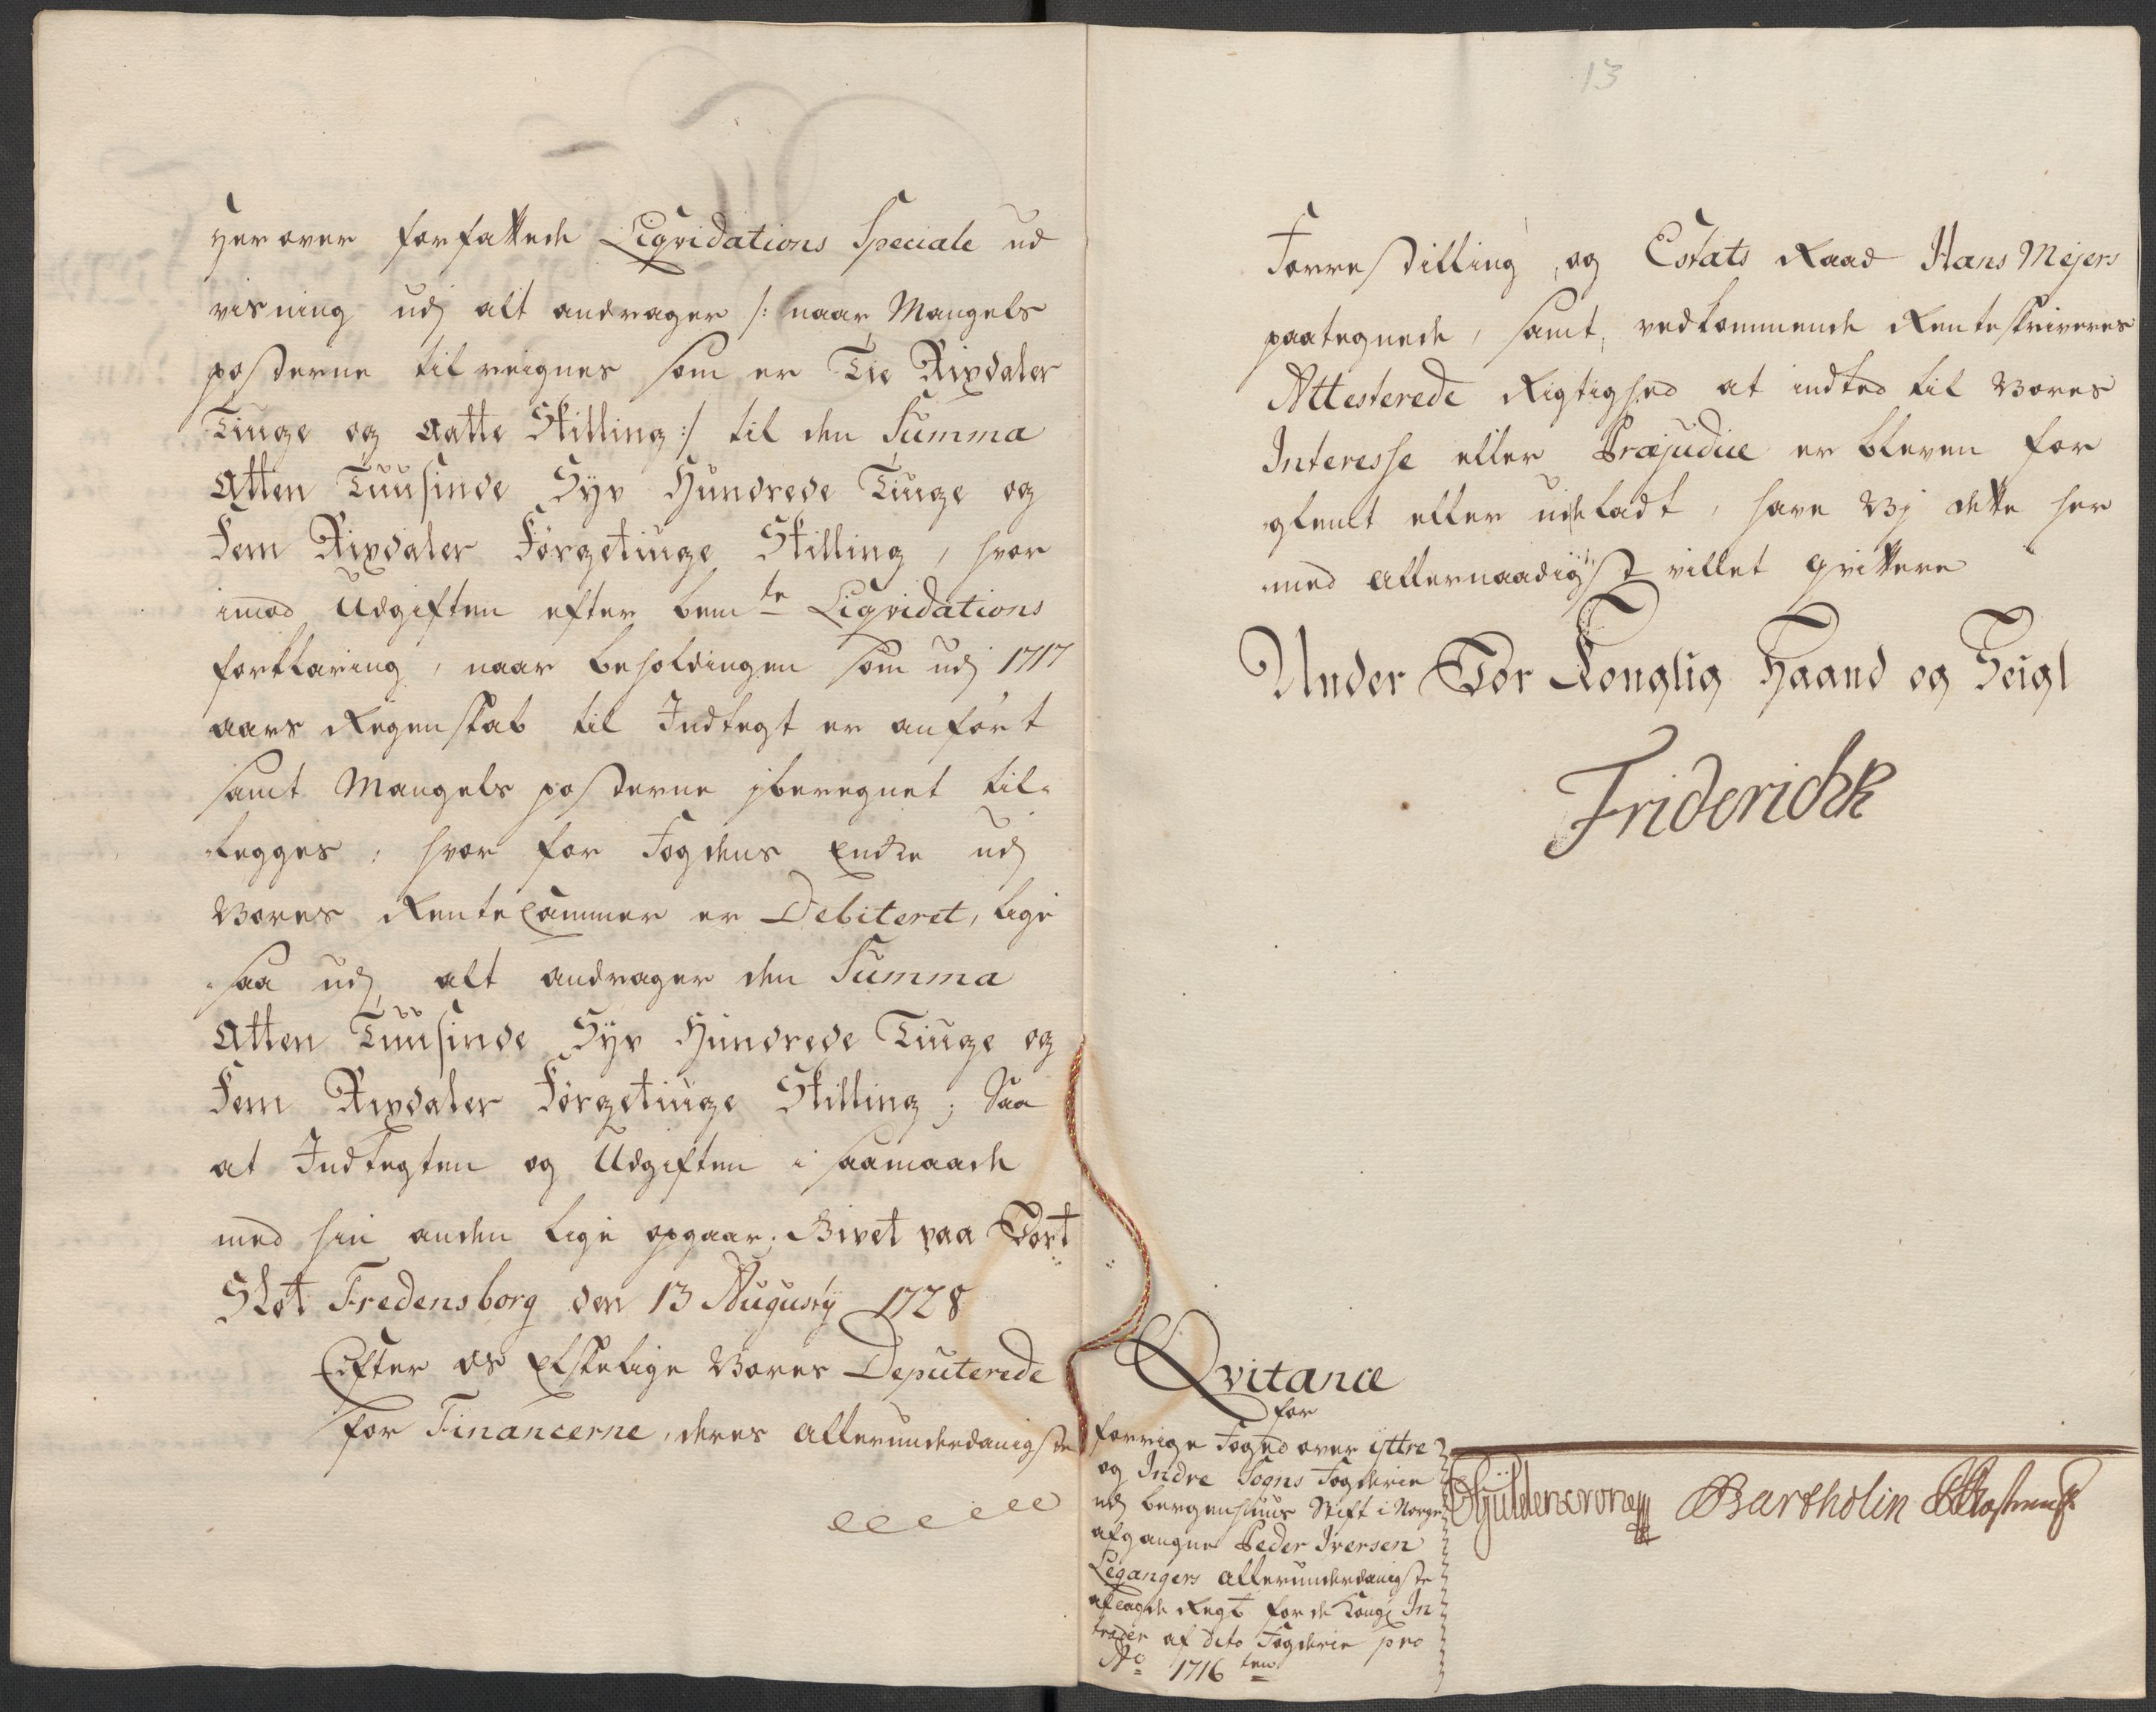 herover forfattede Liqvidations Speciale ud
visning udj alt andrager /: naar Mangels
posterne tilreignes som er Tie Rixdaler
Tiuge og aatte Skilling :/ til den Summa
Atten Tuusinde Syv Hundrede Tiuge og
Fem Rixdaler Förgetiuge Skilling, hvor
imod Udgiften efter bemte Liqvidations
forklaring, naar beholdingen som udj 1717
aars Regenskab til Indtegt er anfört
samt Mangels posterne iberegnet til-
legges, hvor for Fogdens Enke udj
Vores Rentecammer er Debiteret, lige
saa udj alt andrager den Summa
Atten Tuusinde Syv Hundrede Tiuge og
Fem Rixdaler Förgetiuge Skilling; Saa
at Indtegten og Udgiften i saamaade
med hin anden lige opgaar; Givet paa Vort
Slot Fredensborg den 13 Augustij 1728
Efter os Elskelige Vores Deputerede
for Financerne, deres allerunderdanigste
13
Forrestilling, og Estats Raad Hans Mejers
paategnede, samt, vedkommende Renteskriveres
Attesterede Rigtighed at indted til Vores
Interesse eller Præjudice er bleven for
glemt eller udeladt, have Vj dette her
med allernaadigst villet qvittere
Under Vor Konglig Haand og Seigl
Friderich R
Qvitance
for
forrige Foged over ÿttre
og Indre Sogns Fogderie
udj bergenhuus Stift i Norge
afgangne Peder Iversen
Legangers allerunderdanigste
aflagde Regsk for de Kongl In
trader af dito Fogderie pro
Ao 1716
Güldencrone Bartholin